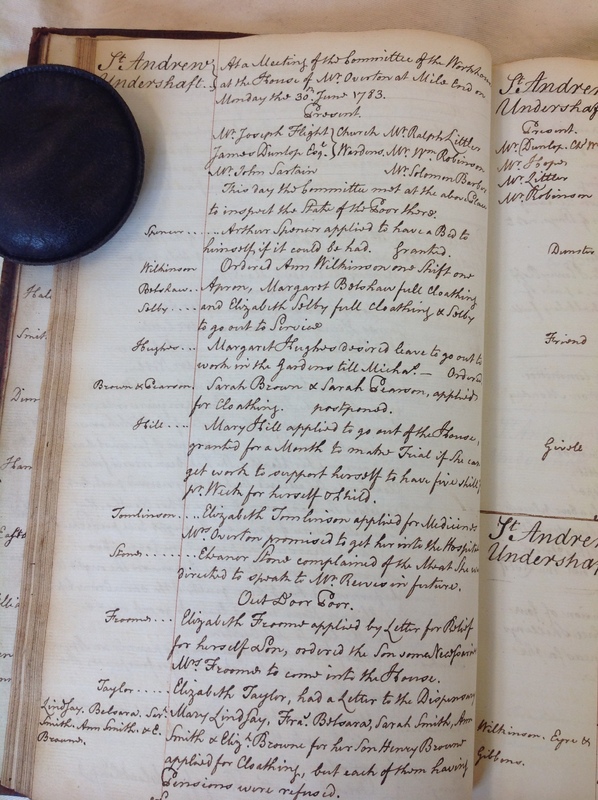 St. Andrew
Undershaft.
At a Meeting of the Committee of the Workhouse
at the House of Mr. Overton at Mile End on
Monday the 30th. June 1783.
Present.
Mr. Joseph Flight } Church Mr. Ralph Littler
James Dunlop Esqr. } Wardens. Mr. Wm. Robinson
Mr. John Sartain Mr. Solomon Barbor
This day the Committee met at the above Place
to inspect the State of the Poor there.
Spencer...... Arthur Spencer applied to have a Bed to
himself, if it could be had. Granted.
Wilkinson Ordered Ann Wilkinson one Shift one
Belshaw... Apron, Margaret Belshaw full Cloathing
Selby.... and Elizabeth Selby full Cloathing & Selby
to go out to Service
Hughes... Margaret Hughes desired leave to go out to
work in the Gardens till Michas. — Ordered
Brown & Pearson. Sarah Brown & Sarah Pearson, applied
for Cloathing. postponed.
Hill.... Mary Hill applied to go out of the House,
granted for a Month to make Trial if She can
get work to support herself to have five shills
pr. Week for herself & Child.
Tomlinson.... Elizabeth Tomlinson applied for Medicines
Mrs. Overton promised to get her into the Hospital
Stone........ Eleanor Stone complained of the Meat She was
directed to speak to Mr. Reeves in future.
Out Door Poor.
Froome... Elizabeth Froome applied by Letter for Relief
for herself & Son, ordered the Son some Necessaries
Mrs. Froome to come into the House.
Taylor..... Elizabeth Taylor, had a Letter to the Dispensary
Lindsay. Belsara. Sarh.
Smith. Ann Smith. & E.
Browne.
Mary Lindsay, Fras. Belsara, Sarah Smith, Ann
Smith & Elizh. Browne for her Son Henry Browne
applied for Cloathing, but each of them having
Pensions were refused.
St. Andrew
Undershaft
Present.
Mr. Dunlop. Ch: W
Mr. Hope
Mr. Littler
Mr. Robinson
Dunster
Friend
Givele
St. Andrew
Undershaft
Wilkinson. Eyre &
Gibbons.